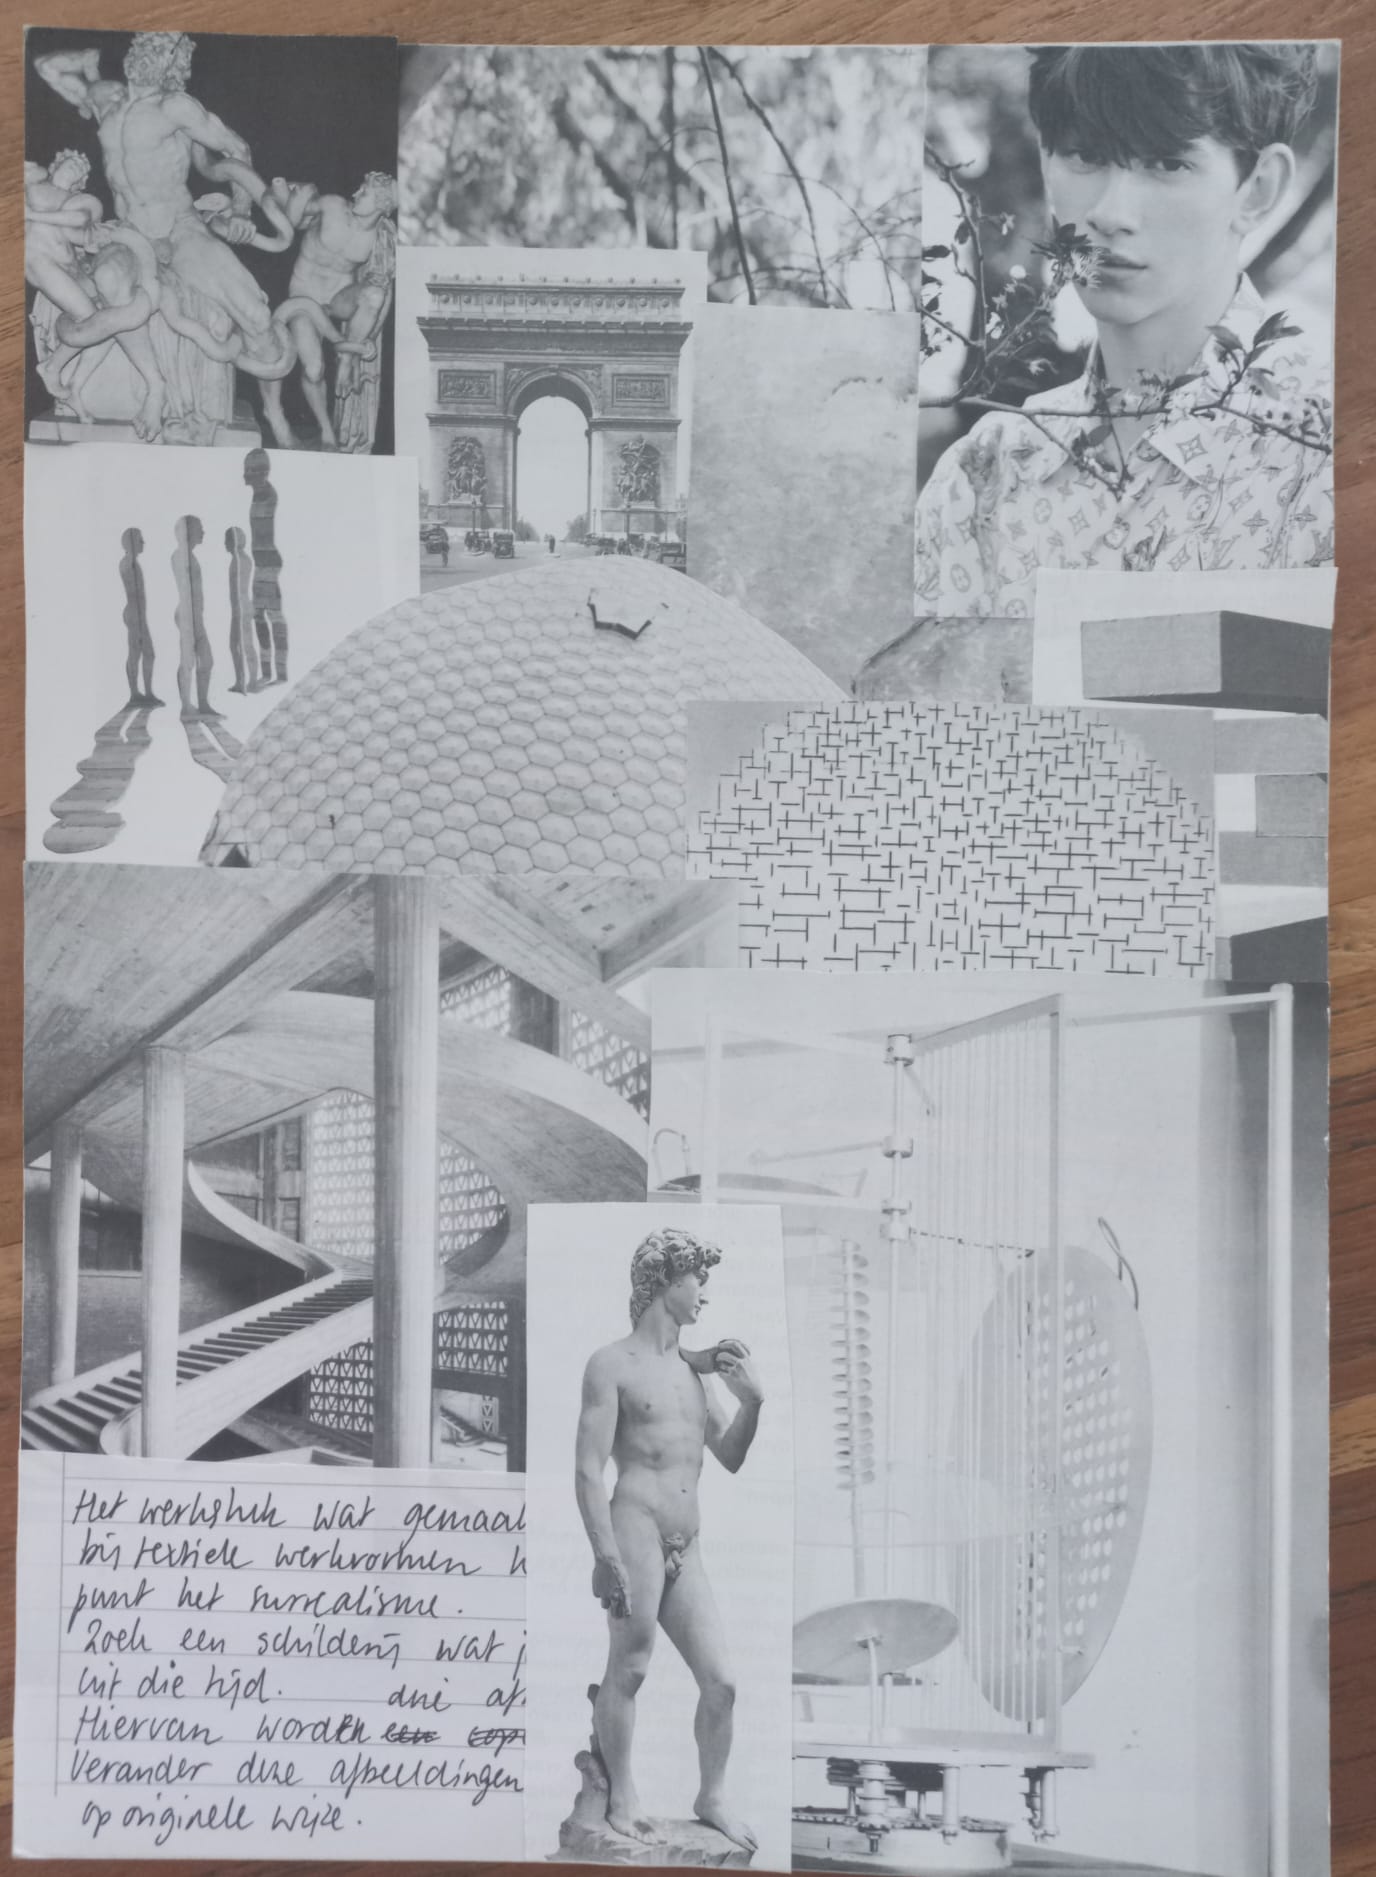 Het werkstuk wat gemaak
bij textiele werkvormen h
punt het surrealisme.
Zoek een schilderij wat
uit die tijd.
drie af
Hiervan worden een
Verander deze afbeeldingen
op originele wijze.